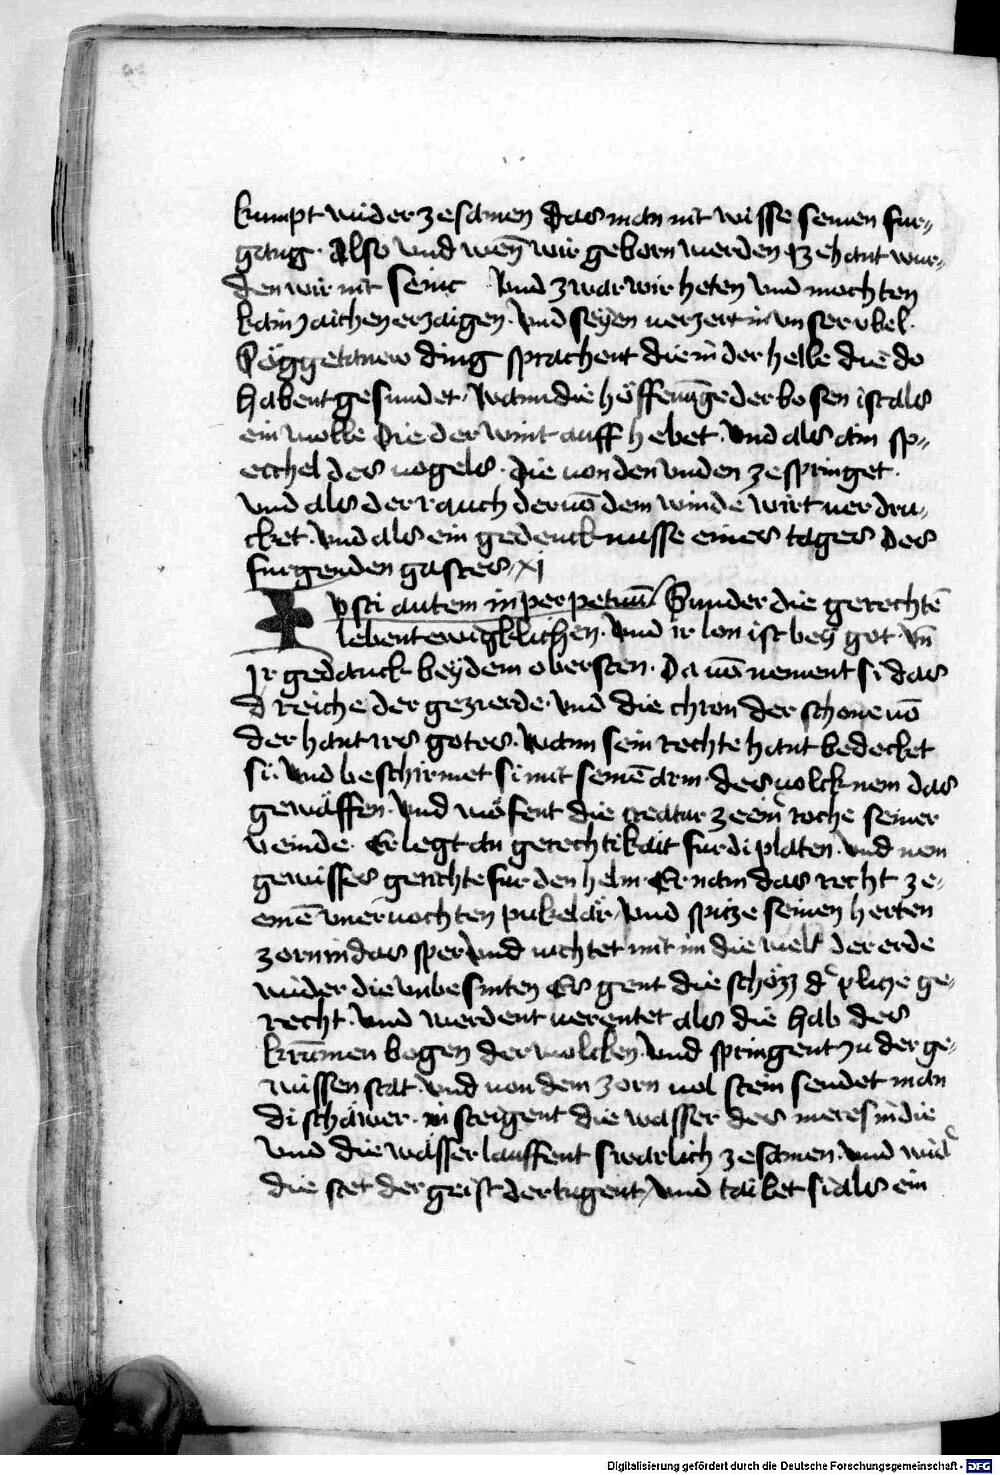 kumpt wider zesamen das man nit wisse seinen fur„
gang. Also und wen̄ wir geborn werden zehant wur„
den wir nit seint Vnd zwar wir heten vnd mochten
kain zaichen erzaigen. vnd seyen uerzert in vnser vbel.
Söggetanew ding sprachent die in der helle die do
habent gesundet / wann die höffenūge der bosen ist als
ein wolle Die der wint auff hebet. vnd als ain sp„
ecchel des uogels. die uon den vnden zespringet.
vnd als der rauch der uō dem winde wirt uerdru„
cket. vnd als ein gedencknusse eines tages des
furgenden gastes / xj
Iusti autem in perpetuū / Sunder die gerechtē
lebent ewigklichen. vnd ir lon ist bey got. vn̄
Ir gedanck bey dem obersten. Da uō nement si das
d reiche der gezierde. vnd die chron der schone uō
der hant irs gotes. wann sein rechte hant bedecket
si. vnd beschirmet si mit seinē arm. des uolck nem das
gewäffen. vnd wöfent die creatur ze ein roche seiner
veinde. Er legt an gerechtikait fur di platen. vnd nem
gewisses gerichte fur den helm. Er nam das recht ze„
einē vneruochten pukelär / vnd spicze seinen herten
zorn in das sper vnd uichtet mit im die welt der erde
wider die vnbesinten Es gent die schözz d plicze ge„
recht. vnd werdent uerentet als die hab des
krūmen bogen der wolcken. vnd springent zu der ge„
wissen stat. vnd uon dem zorn uol stein sendet man
di schäwer. in steigent die wasser des meres in die
vnd die wässer lauffent swarlich zesamen. vnd wid
die stet der geist der tugent / vnd tailet si als ein
Digitalisierung gefördert durch die Deutsche Forschungsgemeinschaft - DFG